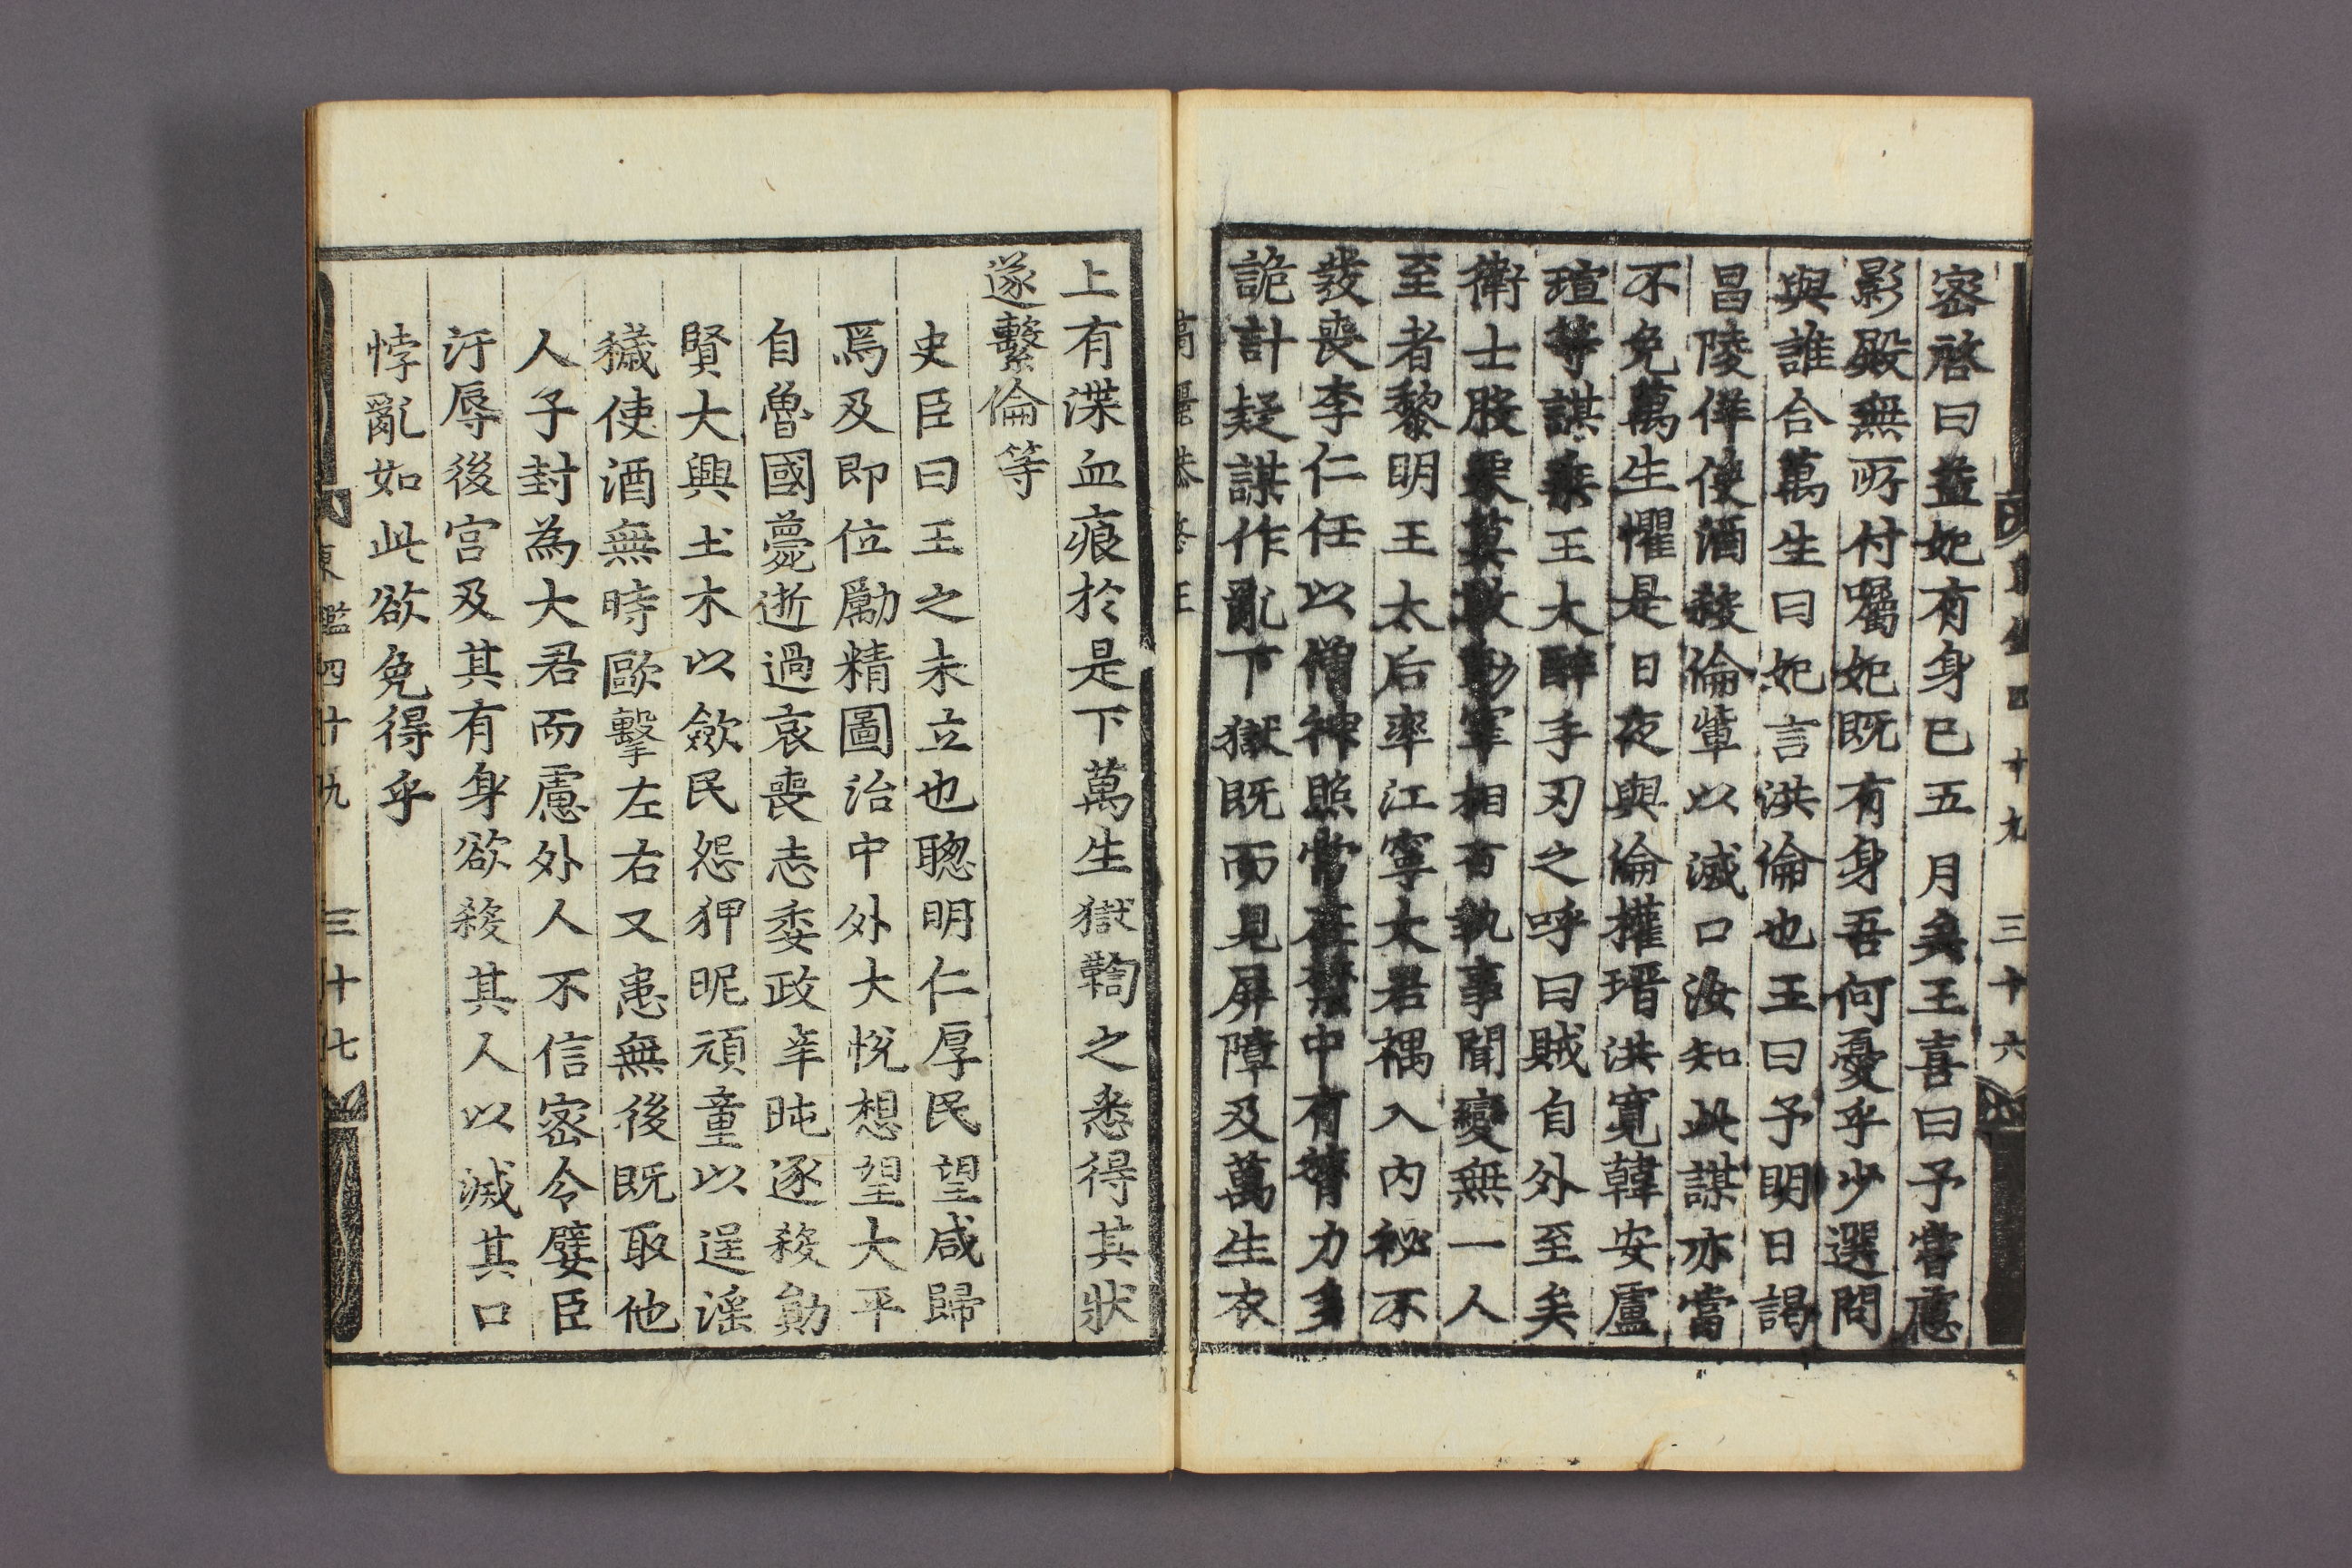 東鑑四十九　三十六
密啓曰益妃有身已五月矣王喜曰予嘗慮
影殿無所付囑妃旣有身吾何憂乎少選問
與誰合萬生曰妃言洪倫也王曰予明日謁
昌陵佯使酒殺倫輩以滅口汝知此謀亦當
不免萬生懼是日夜與倫權瑨洪寬韓安盧
瑄等謀乘王大醉手刃之呼曰賊自外至矣
衛士股栗莫敢動宰相百執事聞變無一人
至者黎明王太后率江寧大君禑入內祕不
發喪李仁任以僧神照常在禁中有膂力多
詭計疑謀作亂下獄旣而見屛障及萬生衣
上有渫血痕於是下萬生獄鞫之悉得其狀
遂繫倫等
史臣曰王之未立也聰明仁厚民望咸歸
焉及即位勵精圖治中外大悅想望大平
自魯國薨逝過哀喪志委政辛旽逐殺勳
賢大興土木以斂民怨狎昵頑童以逞淫
穢使酒無時歐擊左右又患無後旣取他
人子封為大君而慮外人不信密令嬖臣
汙辱後宮及其有身欲殺其人以滅其口
悖亂如此欲免得乎
東鑑四十九　三十七